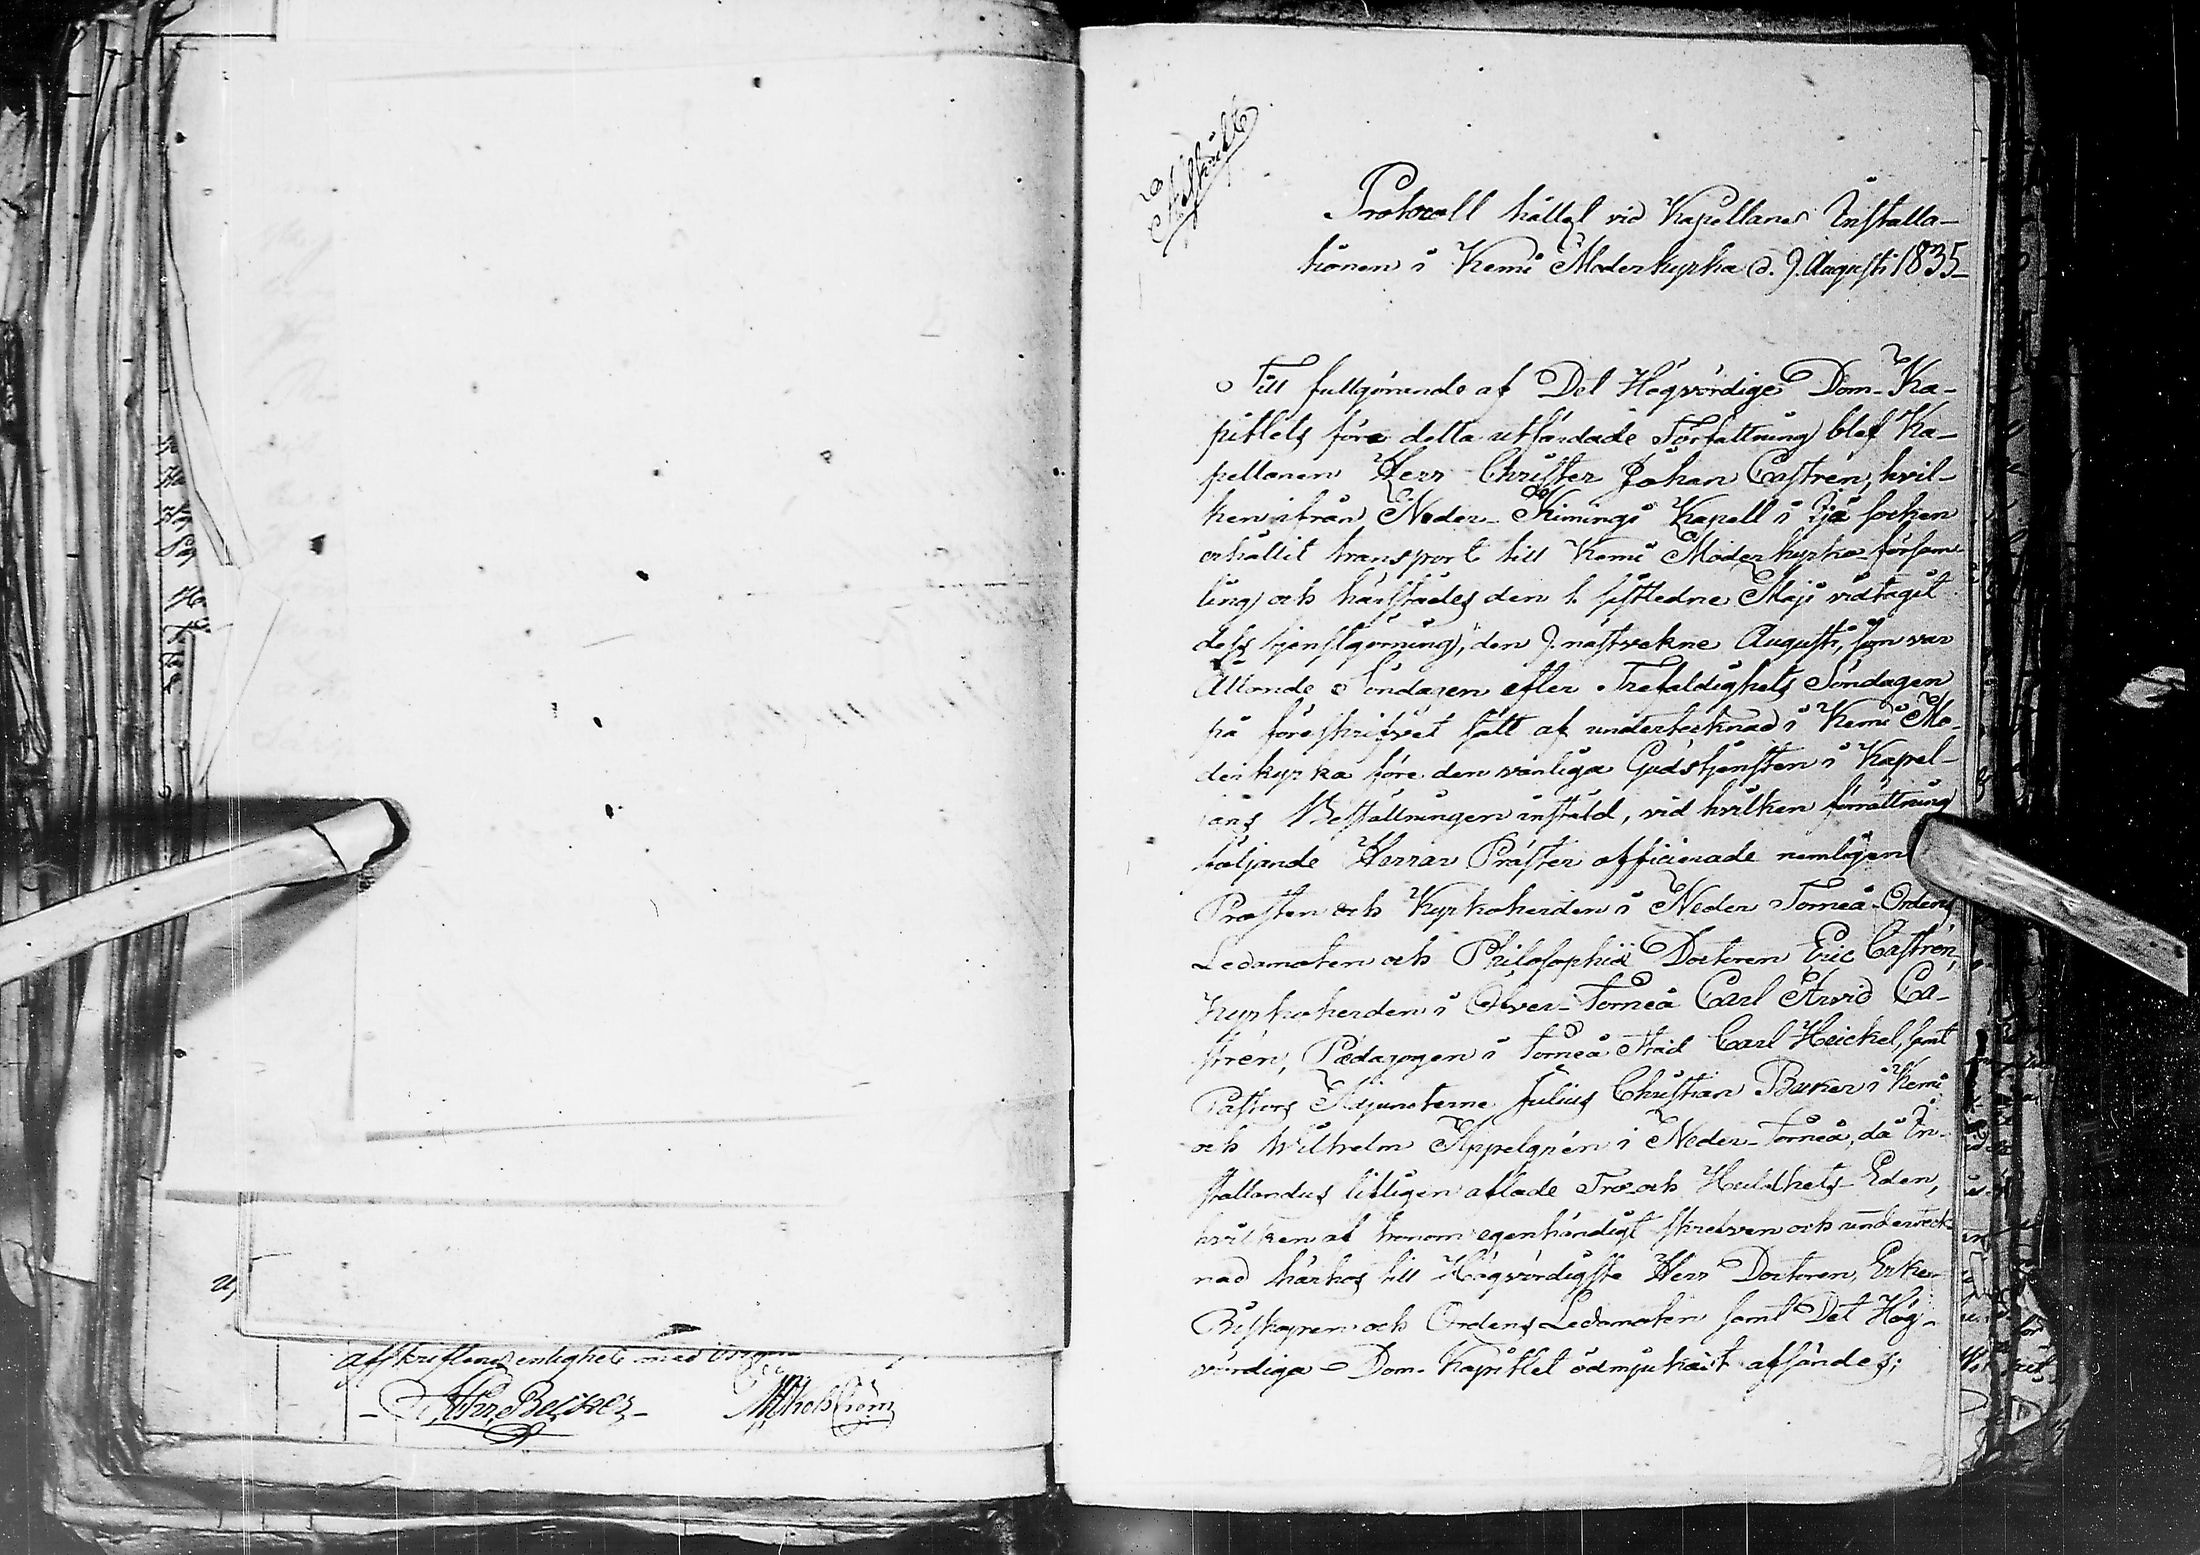 afskriftens enlighet med
Afskrift
Protocoll hållet vid Kapellans Installa-
tionen i Kemi Moderkyrka d. 9. Augusti 1835-
Till fullgörande af Det Högvördige Dom-Ka-
pitlets före detta utfärdade Författning blef Ka-
pellanen Herr Christer Johan Castrén, hvil-
ken ifrån Neder-Kimingi Kapell i Ijo socken
erhållit transport till Kemi Moderkyrko-försam
ling och härstädes den 1. sistledne Maji vidtagit
dess tjenstgörning, den 9. nästvekne Augusti, som var
Åttonde Söndagen efter Trefaldighets Söndagen
på föreskrifvet sätt af undertecknad i Kemi Mo-
derkyrka före den vanliga Gudstjensten i Kapel-
lans Beställningen instäld, vid hvilken förrättning
följande Herrar Präster officierade nemligen
Prosten och Kyrkoherden i Neder Torneå Ordens
Ledamoten och Philosophiæ Doctoren Eric Castrén,
Kyrkoherden i Öfver-Torneå Carl Arvid Ca-
strén, Pædagogen i Torneå Stad Carl Heickel, samt
Pastors Adjuncterne Julius Christian Becker i Kemi
och Wilhelm Appelgrén i Neder-Torneå, då In-
stallandus litligen aflade Tro och Huldhets Eden,
hvilken af honom egenhändigt skrefven och underteck
nad härhos till Högvördigste Herr Doctoren, Erke-
Biskopen och Ordens Ledamoten samt Det Hög-
vördiga Dom-Kapitlet ödmjukast afsändes;